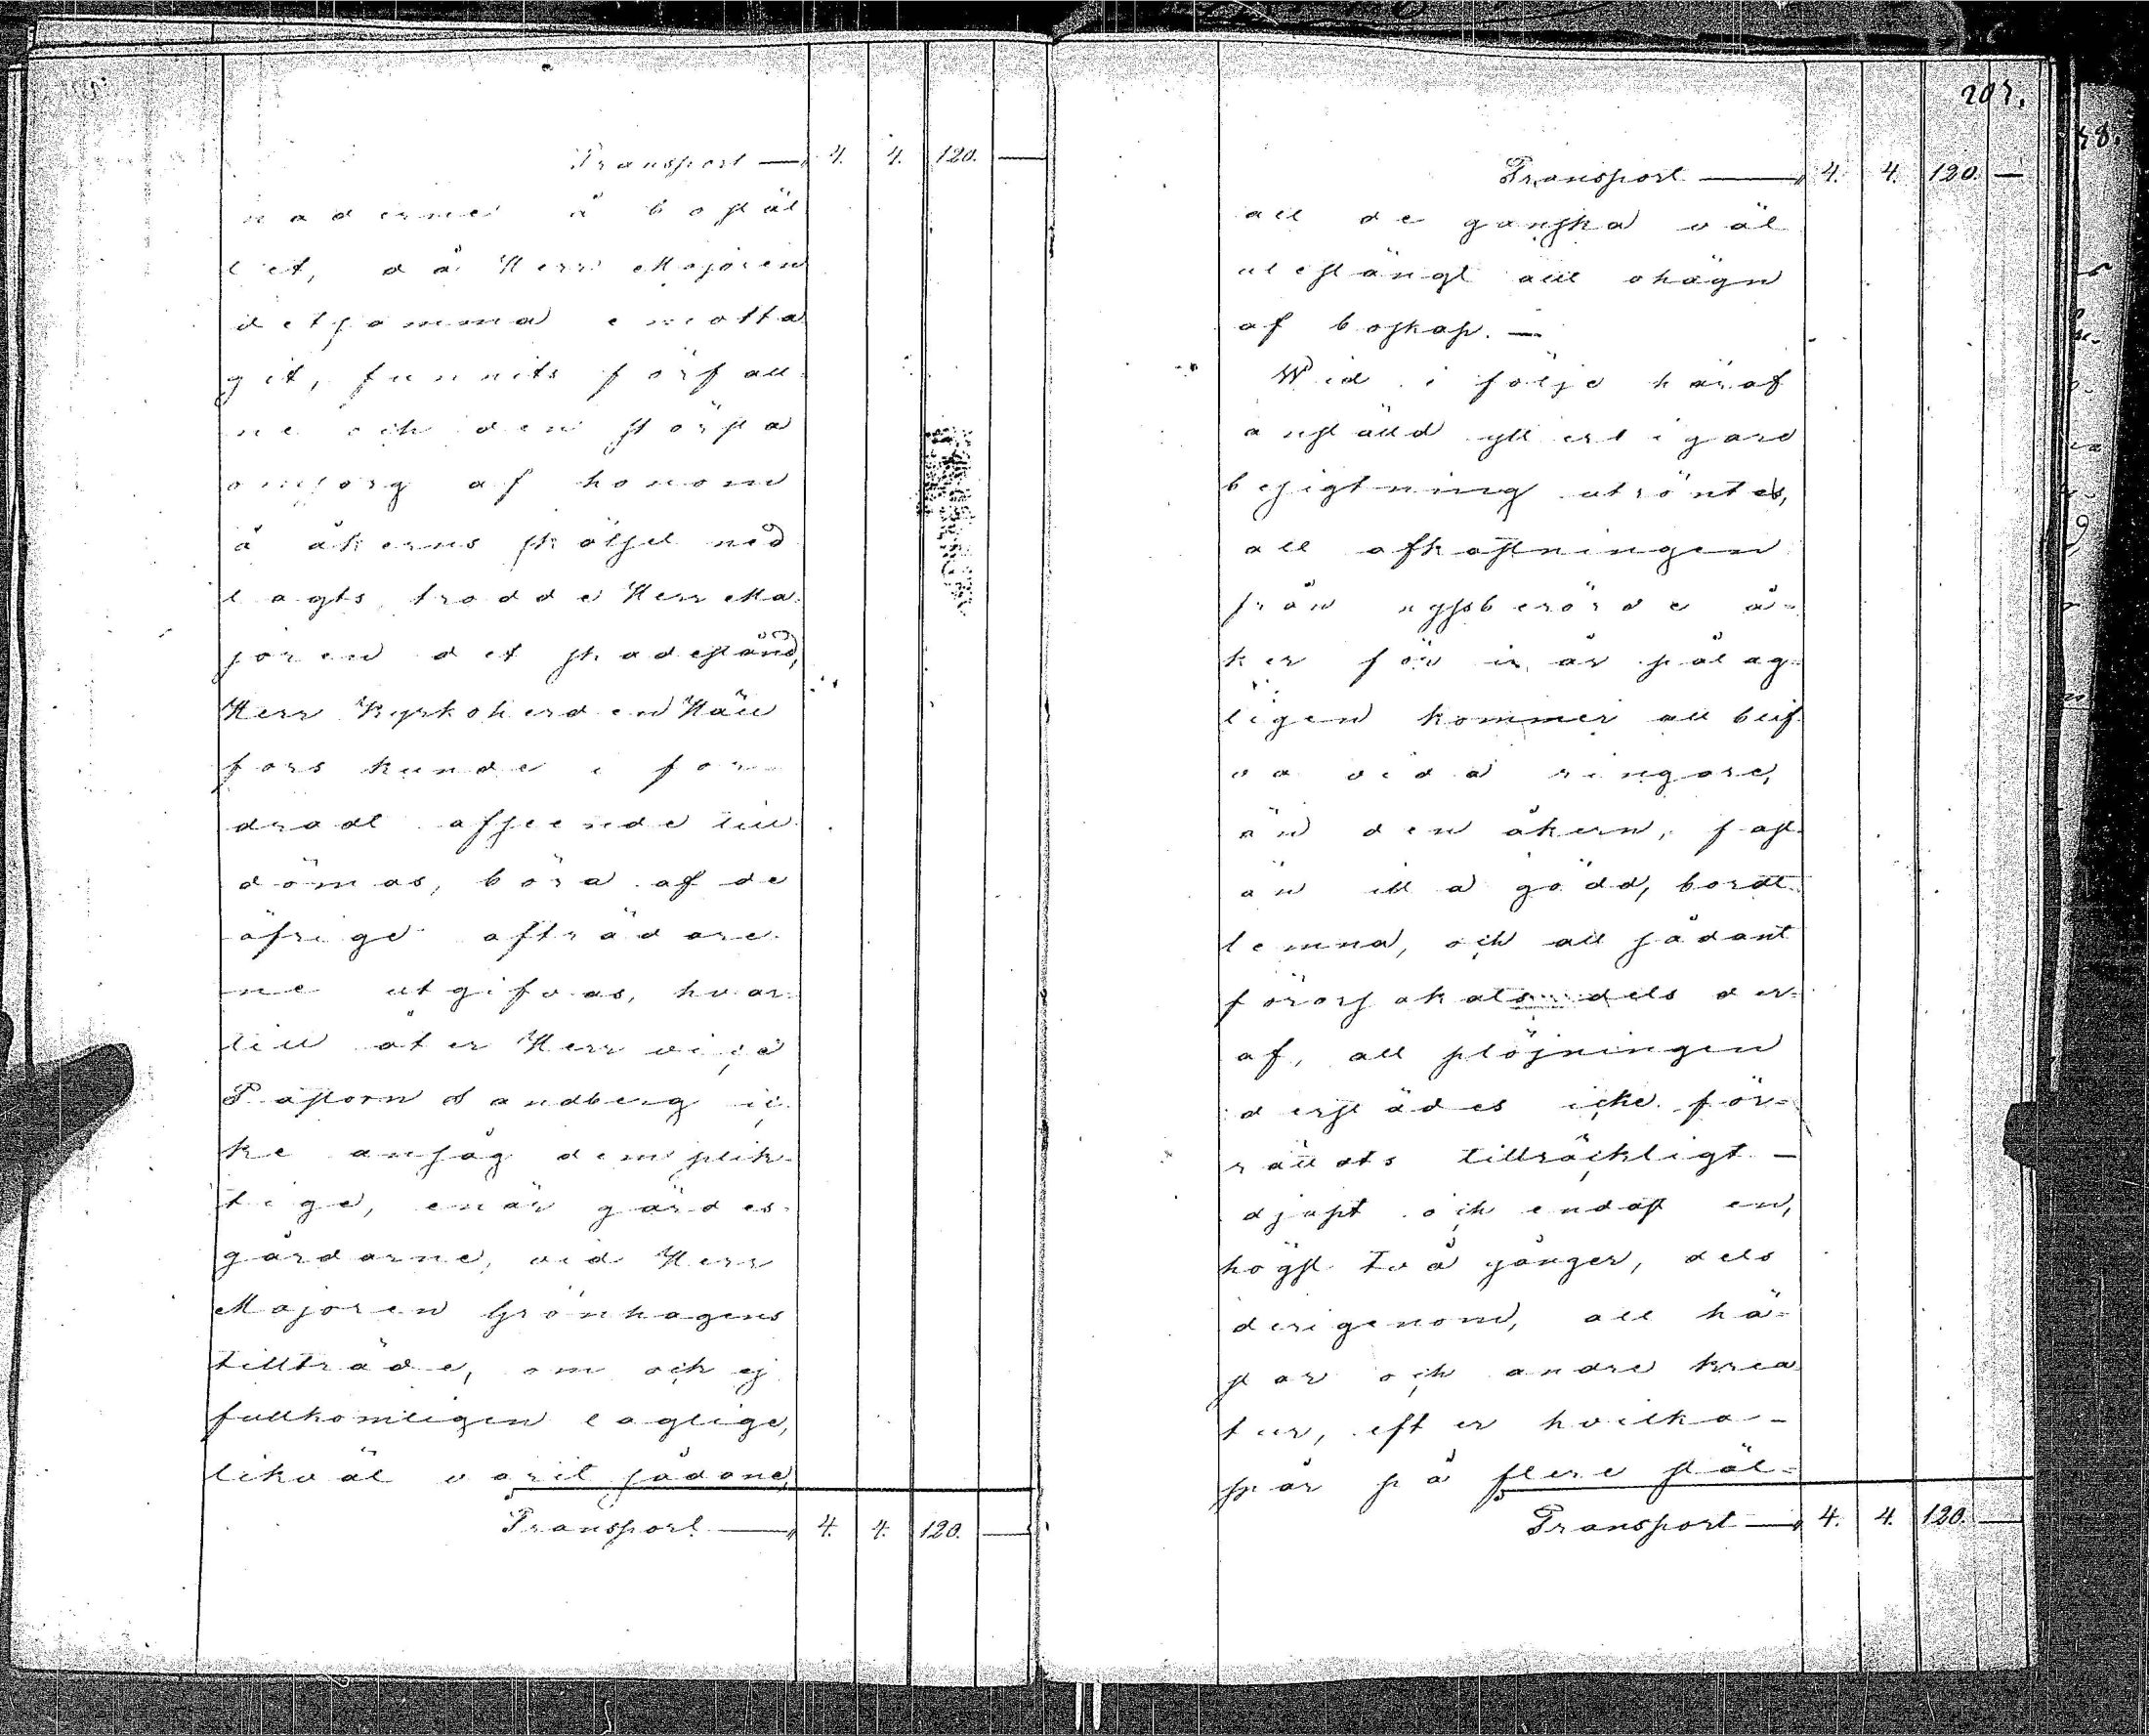 Transport — 4. 4. 120. —
naderne å bostäl
let, då Herr Majoren
detsamma emotta
git, funnits förfall
ne och den största
omsorg af honom
å åkerns skötsel ned
lagts, trodde Herr Ma
joren det skadestånd,
Herr Kyrkoherden Häll
fors kunde i for
dradt afseende till
dömas, böra af de
öfrige afträdare
ne utgifvas, hvar
till åter Herr vice
Pastorn Sandberg ic
ke ansåg dem plik
tige, enär gärdes
gårdarne, vid Herr
Majoren Grönhagens
tillträde, om och ej
fullkomligen laglige,
likväl varit sådane,
Transport — 4. 4. 120. —
205.
Transport — 4. 4. 120. —
att de ganska väl
utestängt allt ohägn
af boskap. —
Wid i följe häraf
anställd ytterligare
besigtning utröntes,
att afkastningen
från nyssberörde å-
ker för i år påtag
ligen kommer att blif
va vida ringare,
än den åkern, fast
än illa gödd, bordt
lemna, och att sådant
förorsakats dels der-
af, att plöjningen
derstädes icke för-
rättats tillräckligt —
djupt och endast en,
högst två gånger, dels
derigenom, att hä-
star och andre krea
tur, efter hvilka -
spår på flere stäl-
Transport — 4. 4. 120. —